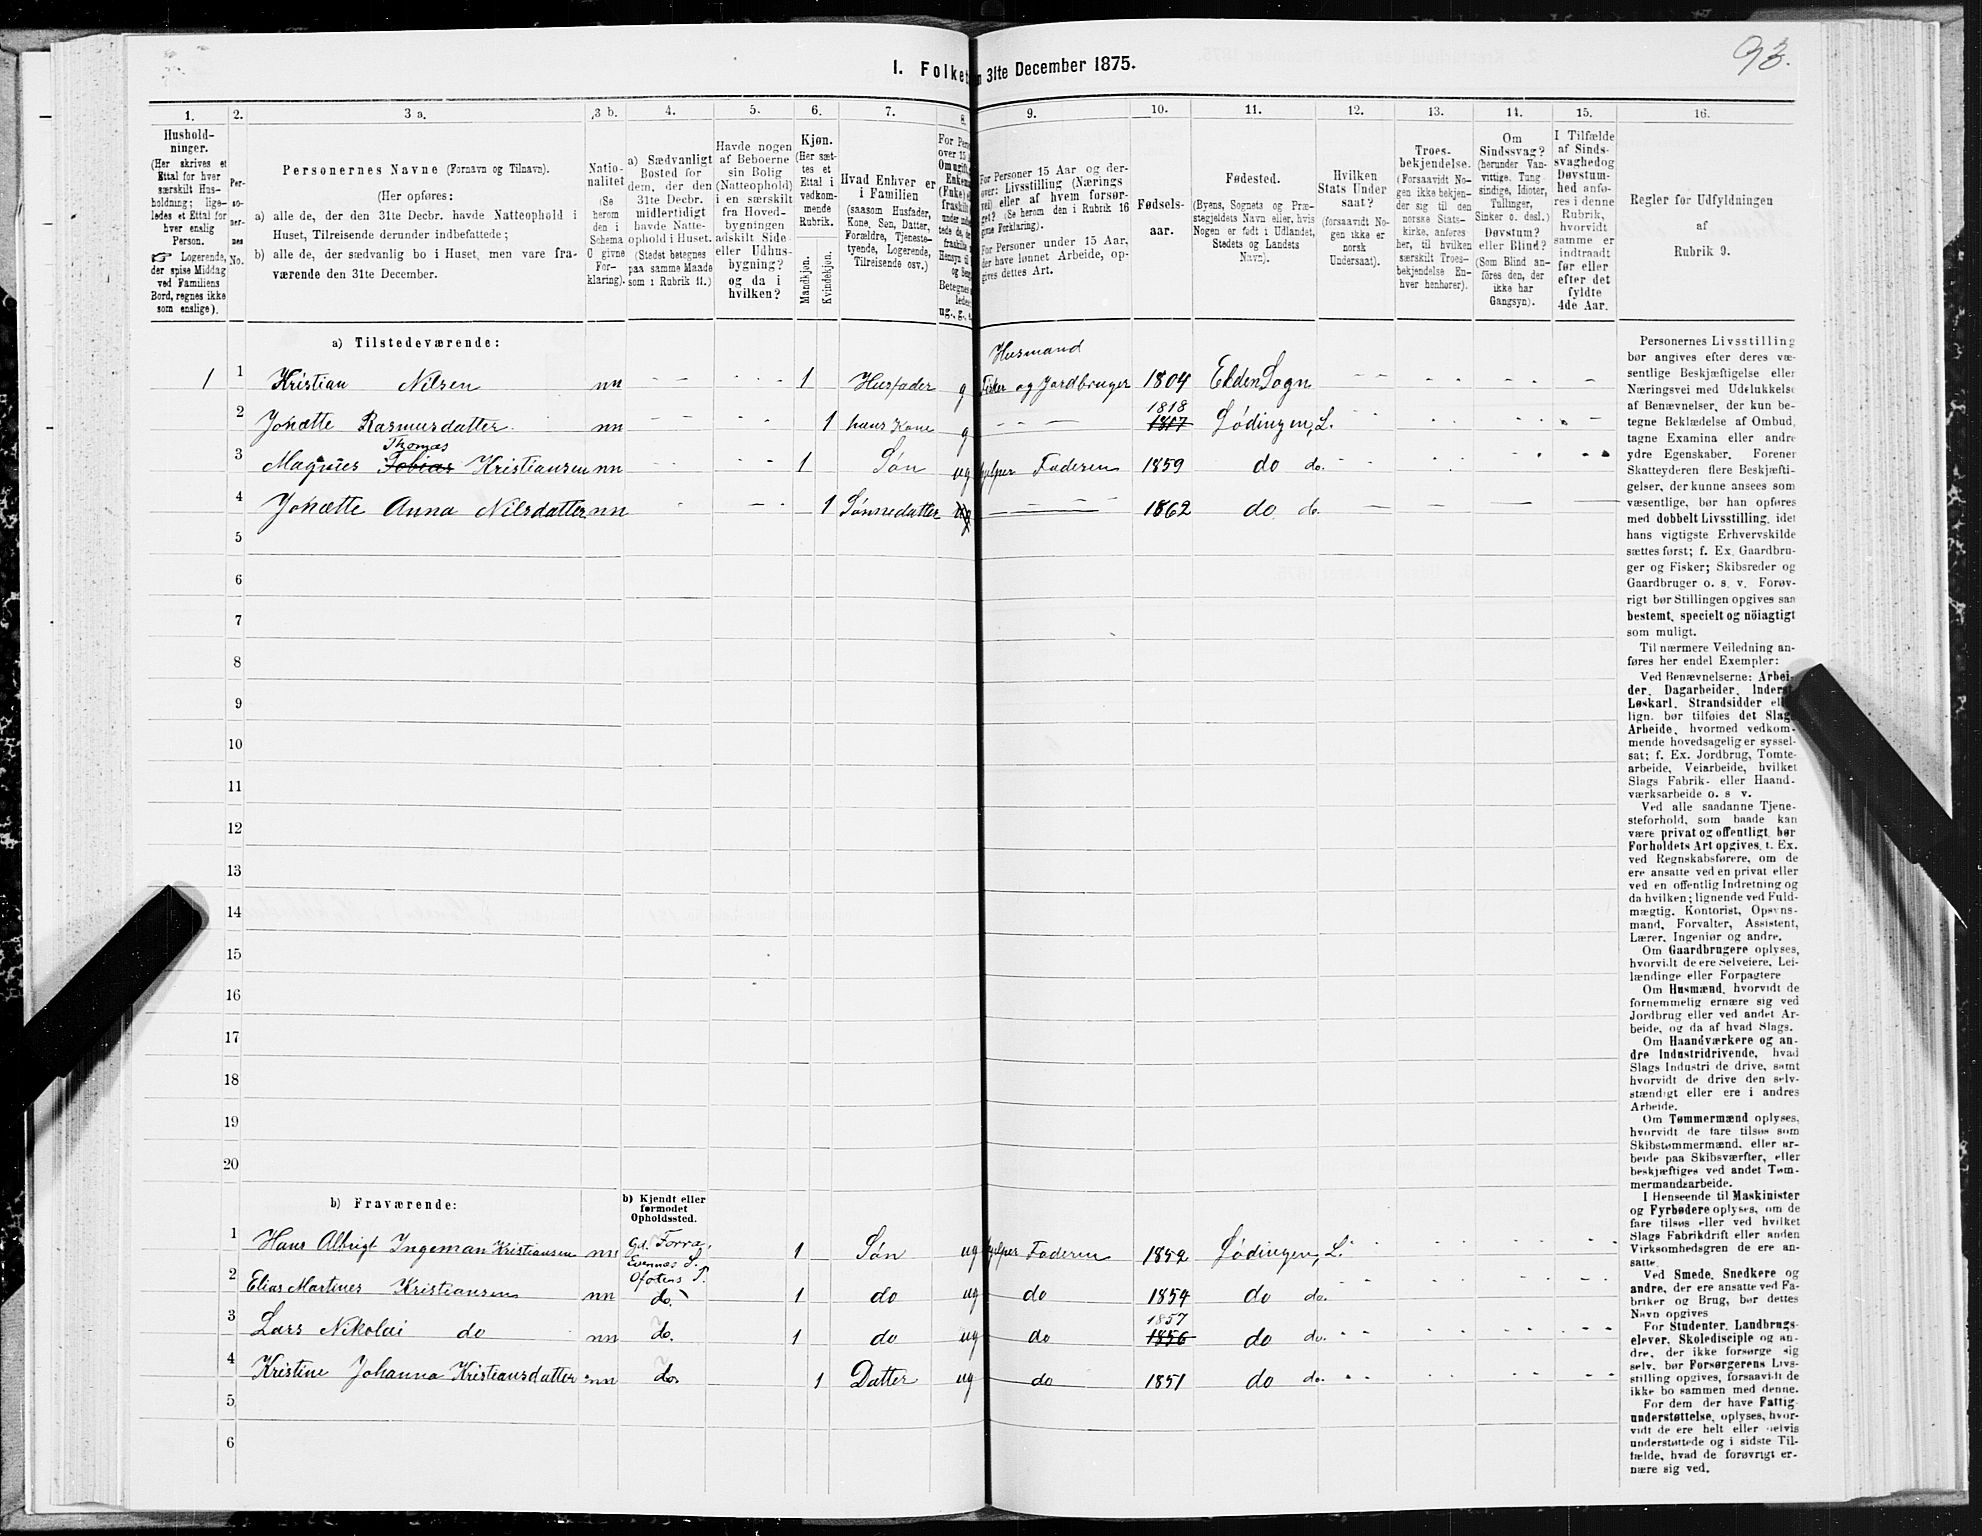 93.
1. Folket
n 31te December 1875.
1.
2.
3 a.
3 b.
4.
5.
6.
7.
8.
9.
10.
11.
12.
13.
14.
15.
16.
Hushold-
ninger.
(Her skrives et
Ettal for hver
særskilt Hus-
holdning; lige-
ledes et Ettal for
hver enslig
Person.
☞ Logerende,
der spise Middag
ved Familiens
Bord, regnes ikke
som enslige).
Per-
so-
ner-
nes
No.
Personernes Navne (Fornavn og Tilnavn).
(Her opføres:
a) alle de, der den 31te Decbr. havde Natteophold i
Huset, Tilreisende derunder indbefattede;
b) alle de, der sædvanlig bo i Huset, men vare fra-
værende den 31te December.
Natio-
nalitet
(Se
herom
den i
Schema
O givne
For-
klaring).
a) Sædvanligt
Bosted for
dem, der den
31te Decbr.
midlertidigt
havde Natte-
ophold i Huset.
(Stedet betegnes
paa samme Maade
som i Rubrik 11.)
Havde nogen
af Beboerne
sin Bolig
(Natteophold)
i en særskilt
fra Hoved-
bygningen
adskilt Side-
eller Udhus-
bygning?
og da i
hvilken?
Kjøn.
(Her sæt-
tes et
Ettal i
vedkom-
mende
Rubrik.
Mandkjøn.
Kvindekjøn.
Hvad Enhver er
i Familien
(saasom Husfader,
Kone, Søn, Datter,
Forældre, Tjeneste-
tyende, Logerende,
Tilreisende osv.)
For Pers
over 15 A
Om ugift,
Enkem
(Enke) e
fraskilt
under indf
tede de, de
fraskilte
Hensyn til
og Seng
Betegnes
ledes
ug., g., e
For Personer 15 Aar og der-
over: Livsstilling (Nærings
vei) eller af hvem forsør-
get? (Se herom den i Rubrik 16
givne Forklaring).
For Personer under 15 Aar,
der have lønnet Arbeide, op-
gives dettes Art.
Fødsels-
aar.
Fødested.
(Byens, Sognets og Præ-
stegjeldets Navn eller, hvis
Nogen er født i Udlandet,
Stedets og Landets
Navn).
Hvilken
Stats Under
saat?
(forsaavidt No-
gen ikke er
norsk
Undersaat).
Troes-
bekjendelse.
(Forsaavidt No-
gen ikke bekjen-
der sig til den
norske Stats-
kirke, anføres
her, til hvilken
særskilt Troes-
bekjendelse En-
hver henhører).
Om
Sindssvag?
(herunder Van-
vittige, Tung
sindige, Idioter,
Tullinger,
Sinker o. desl.)
Døvstum?
eller Blind?
(Som Blind an-
føres den, der
ikke har
Gangsyn).
I Tilfælde
af Sinds-
svaghedog
Døvstum-
hed anfø-
res i denne
Rubrik,
hvorvidt
samme er
indtraadt
før eller
efter det
fyldte
4de Aar.
Regler for Udfyldningen
af
Rubrik 9.
a) Tilstedeværende:
Husmand
1 1 Kristian Nilsen nn - - - - - 1 Husfader g Fisker og Jordbruger 1804 Elden Sogn - - - - - -
1818
2 Jonætte Rasmusdatter nn - - - 1 hans Kone g - - - 1817 Lødingen, L. - - - - -
Thomas
3 Magnus Tobias Kristiansen nn - - - - 1 Søn ug hjelper Faderen 1859 do do. - - - -
4 Jonætte Anna Nilsdatter nn - - - 1 Sønnedatter ug - - - 1862 do do. - - - -
5
6
7
8
9
10
11
12
13
14
15
16
17
18
19
20
b) Fraværende:
b) Kjendt eller
formodet
Opholdssted.
1 Hans Albrigt Ingeman Kristiansen nn Gd. Forra, 1 Søn ug hjelper Faderen 1852 Lødingen, L. - - - -
Evennes S.
Ofotens P.
2 Elias Martines Kristiansen nn do. 1 do ug do 1854 do do. - - - -
1857
3 Lars Nikolai do nn do. 1 do ug do 1856 do do. - - - -
4 Kristine Johanna Kristiansdatter nn do. 1 Datter ug do 1851 do do. - - - -
5
6
Personernes Livsstilling
bør angives efter deres væ-
sentlige Beskjæftigelse eller
Næringsvei med Udelukkelse
af Benævnelser, der kun be-
tegne Beklædelse af Ombud,
tagne Examina eller andre
ydre Egenskaber. Forener
Skatteyderen flere Beskjæfti-
gelser, der kunne ansees som
væsentlige, bør han opføres
med dobbelt Livsstilling, idet
hans vigtigste Erhvervskilde
sættes først; f. Ex. Gaardbru-
ger og Fisker; Skibsreder og
Gaardbruger o. s. v. Forøv-
rigt bør Stillingen opgives saa
bestemt, specielt og nöiagtigt
som muligt.
Til nærmere Veiledning an-
føres her endel Exempler:
Ved Benævnelserne: Arbei-
der, Dagarbeider, Inderst,
Løskarl, Strandsidder ell
lign. bør tilføies det Slags
Arbeide, hvormed vedkom-
mende hovedsagelig er syssel-
sat; f. Ex. Jordbrug, Tomte-
arbeide, Veiarbeide, hvilket
Slags Fabrik- eller Haand-
værksarbeide o. s v.
Ved alle saadanne Tjene-
steforhold, som baade kan
være privat og offentligt, bør
Forholdets Art opgives, t. Ex.
ved Regnskabsførere, om de
ere ansatte ved en privat eller
ved en offentlig Indretning og
da hvilken; lignende ved Fuld-
mægtig, Kontorist, Opsyns-
mand, Forvalter, Assistent,
Lærer, Ingeniør og andre.
Om Gaardbrugere oplyses,
hvorvidt de ere Selveiere, Lei-
lændinge eller Forpagtere
Om Husmænd, hvorvidt de
fornemmelig ernære sig ved
Jordbrug eller ved andet Ar-
beide, og da af hvad Slags.
Om Haandværkere og an-
dre Industridrivende, hvad
Slags Industri de drive, samt
hvorvidt de drive den selv-
stændigt eller ere i andres
Arbeide.
Om Tømmermænd oplyses,
hvorvidt de fare tilsøs som
Skibstømmermænd, eller ar-
beide paa Skibsværfter, eller
beskjæftiges ved andet Tøm-
mermandsarbeide.
I Henseende til Maskinister
og Fyrbødere oplyses, om de
fare tilsøs eller ved hvilket
Slags Fabrikdrift eller anden
Virksomhedsgren de ere an-
satte.
Ved Smede, Snedkere og
andre, der ere ansatte ved Fa-
briker og Brug, bør dettes
Navn opgives
For Studenter, Landbrugs-
elever, Skoledisciple og an-
dre, der ikke forsørge sig
selv, bør Forsørgerens Livs-
stilling opgives, forsaavidt de
ikke bo sammen med denne.
For dem, der have Fattig-
understøttelse, oplyses, hvor-
vidt de ere helt eller delvis
understøttede og i sidste Til-
fælde, hvad de forøvrigt er-
nære sig ved.